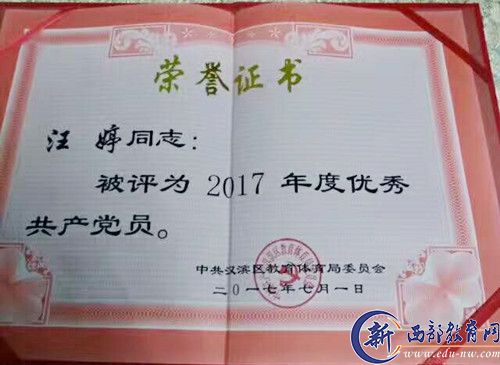 荣誉证书
汪婷同志：
被评为 2017 年度优秀
共产党员。
中共汉滨区教育体育局委员会
二〇一七年七月一日
新 西部教育网
www.edu-nw.com